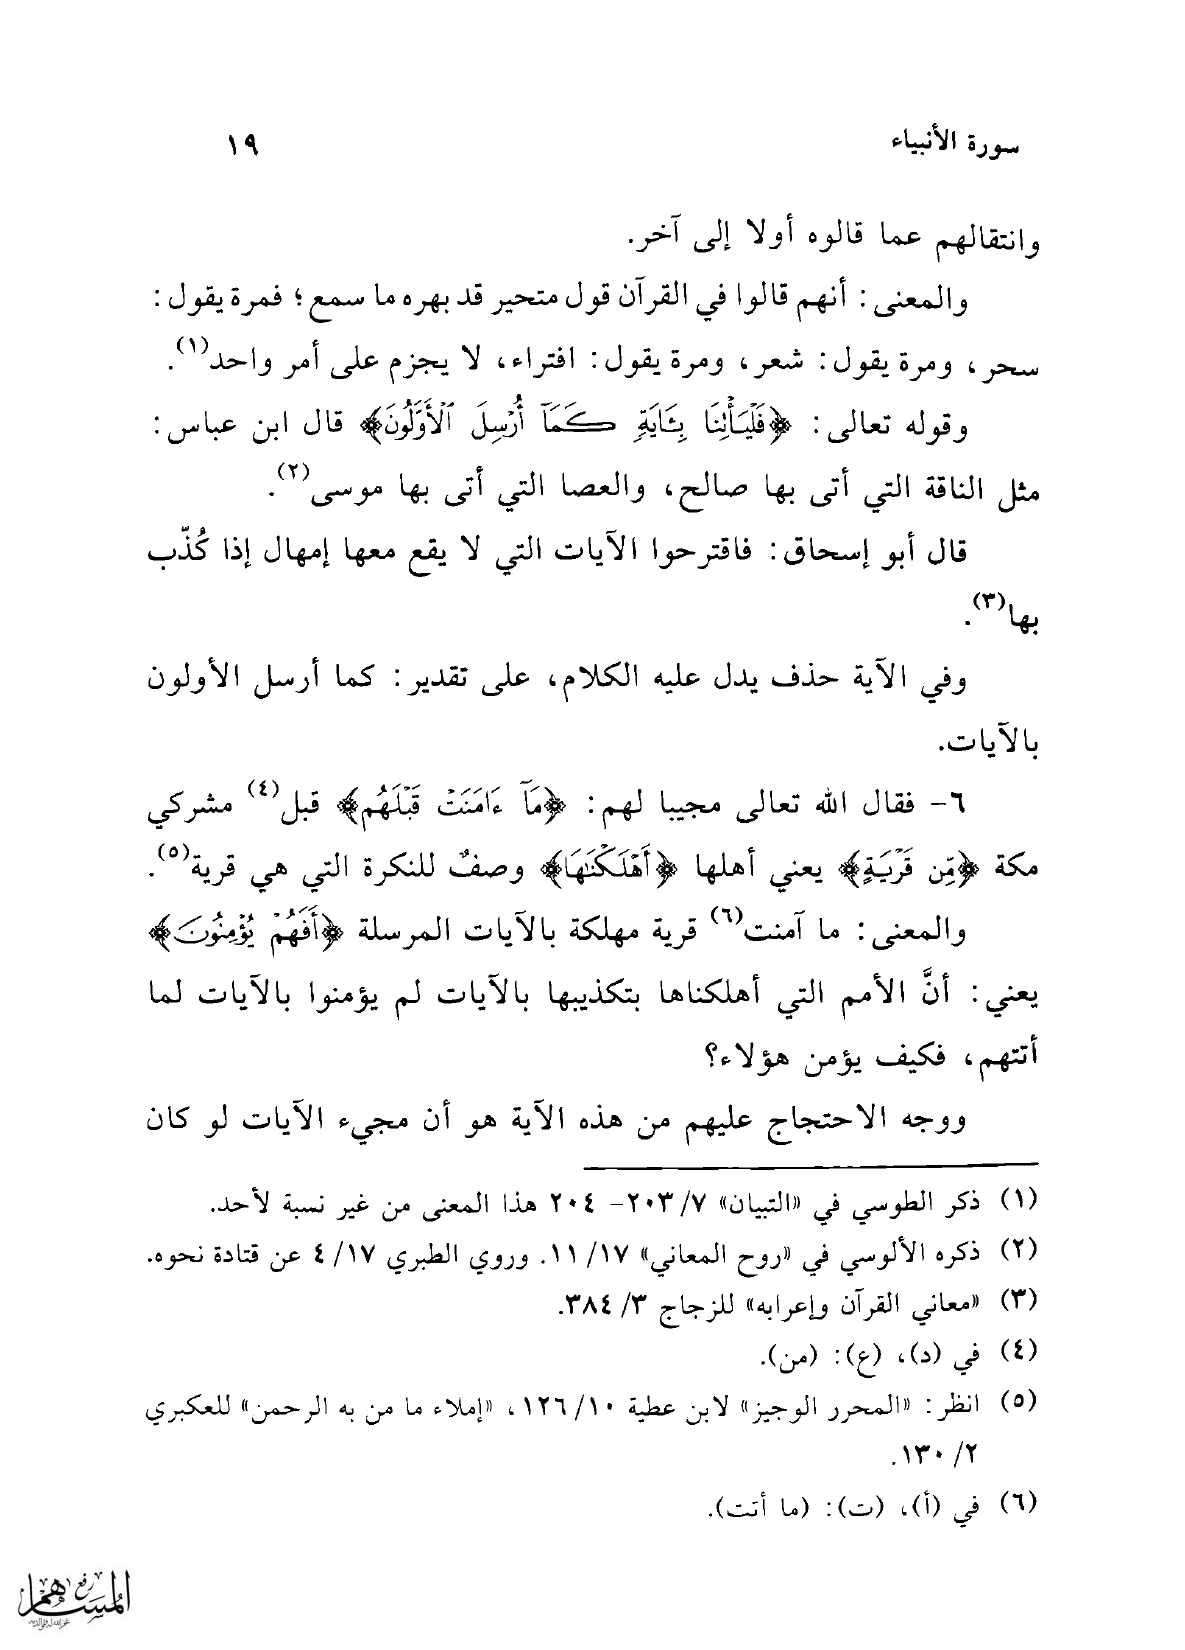 سورة الأنبياء
١٩
وانتقالهم عما قالوه أولا إلى آخر.
والمعنى: أنهم قالوا في القرآن قول متحير قد بهره ما سمع؛ فمرة يقول:
سحر، ومرة يقول: شعر، ومرة يقول: افتراء، لا يجزم على أمر واحد(١).
وقوله تعالى: ﴿فَلْيَأْتِنَا بِـَٔايَةٍ كَمَآ أُرْسِلَ ٱلْأَوَّلُونَ﴾ قال ابن عباس:
مثل الناقة التي أتى بها صالح، والعصا التي أتى بها موسى(٢).
قال أبو إسحاق: فاقترحوا الآيات التي لا يقع معها إمهال إذا كُذّب
بها(٣).
وفي الآية حذف يدل عليه الكلام، على تقدير: كما أرسل الأولون
بالآيات.
٦- فقال الله تعالى مجيبا لهم: ﴿مَآ ءَامَنَتْ قَبْلَهُم﴾ قبل(٤) مشركي
مكة ﴿مِّن قَرْيَةٍ﴾ يعني أهلها ﴿أَهْلَكْنَٰهَا﴾ وصفٌ للنكرة التي هي قرية(٥).
والمعنى: ما آمنت(٦) قرية مهلكة بالآيات المرسلة ﴿أَفَهُمْ يُؤْمِنُونَ﴾
يعني: أنَّ الأمم التي أهلكناها بتكذيبها بالآيات لم يؤمنوا بالآيات لما
أتتهم، فكيف يؤمن هؤلاء؟
ووجه الاحتجاج عليهم من هذه الآية هو أن مجيء الآيات لو كان
(١) ذكر الطوسي في «التبيان» ٧/ ٢٠٣- ٢٠٤ هذا المعنى من غير نسبة لأحد.
(٢) ذكره الألوسي في «روح المعاني» ١٧/ ١١. وروي الطبري ١٧/ ٤ عن قتادة نحوه.
(٣) «معاني القرآن وإعرابه» للزجاج ٣/ ٣٨٤.
(٤) في (د)، (ع): (من).
(٥) انظر: «المحرر الوجيز» لابن عطية ١٠/ ١٢٦، «إملاء ما من به الرحمن» للعكبري
٢/ ١٣٠.
(٦) في (أ)، (ت): (ما أتت).
رفع
المساهم